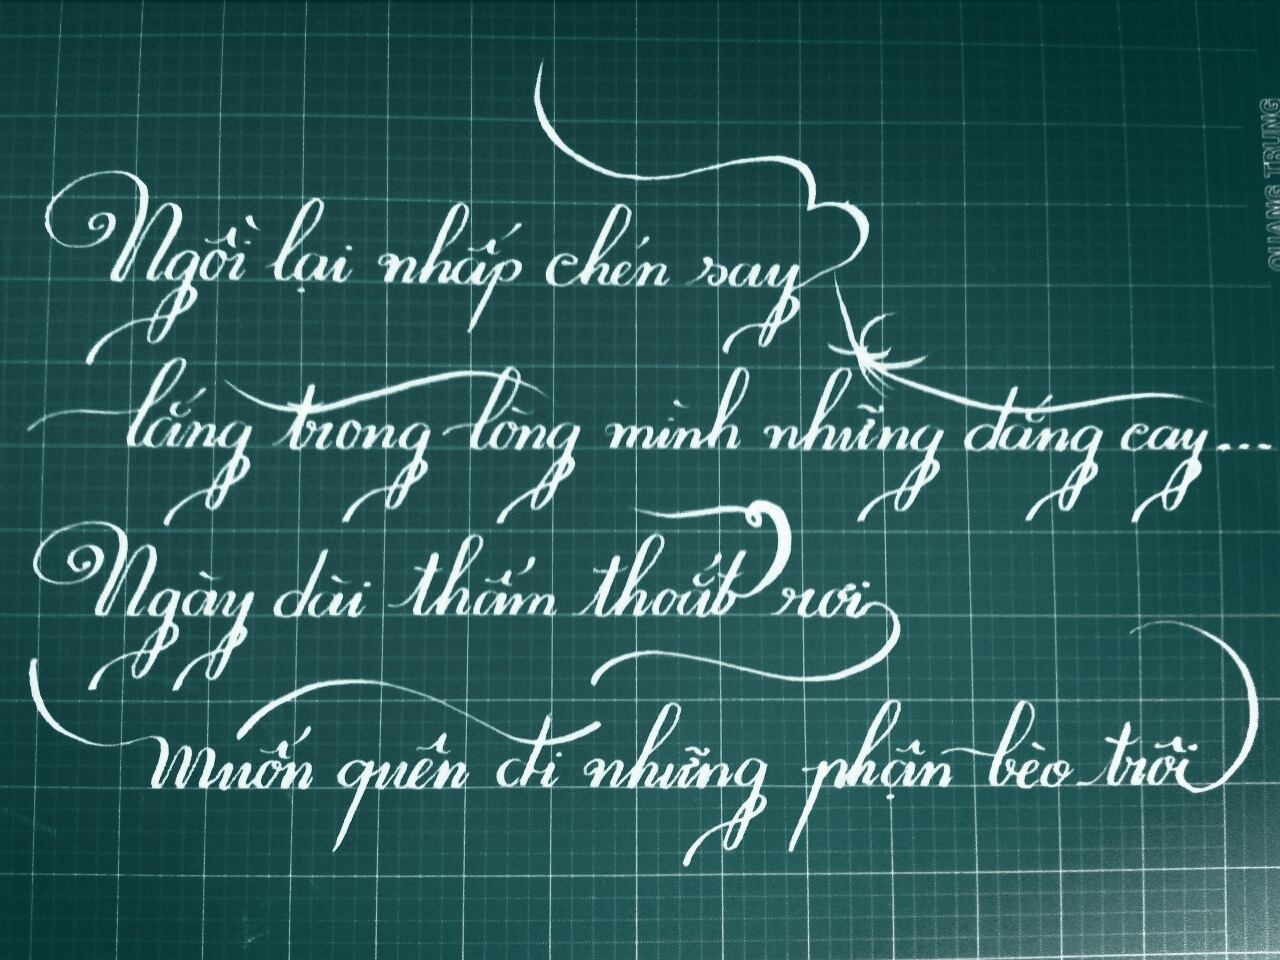 Ngồi lại nhấp chén say
lắng trong lòng mình những đắng cay...
Ngày dài thấm thoắt rơi
muốn quên đi những phận bèo trôi
QUANG TRUNG